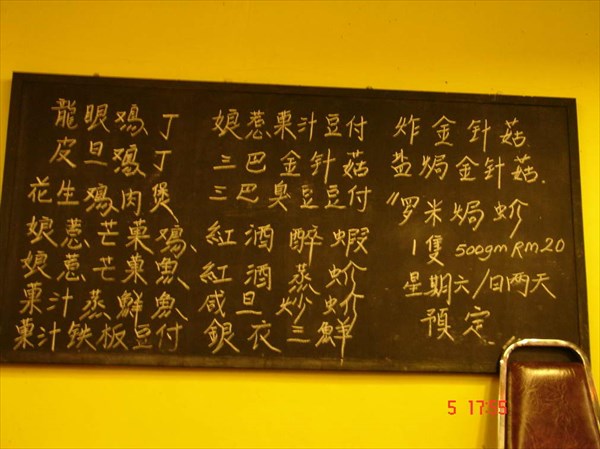 龍眼鸡丁
皮旦鸡丁
花生鸡肉煲
娘惹芒菓鸡
娘惹芒菓魚
菓汁蒸鮮魚
菓汁铁板豆付
娘惹菓汁豆付
三巴金針菇
三巴臭豆豆付
紅酒醉蝦
紅酒蒸蚧
咸旦炒蚧
銀衣三鮮
炸金針菇
盐焗金針菇
"罗米焗蚧
1隻 500gm RM20
星期六/日两天
預定
5 17: